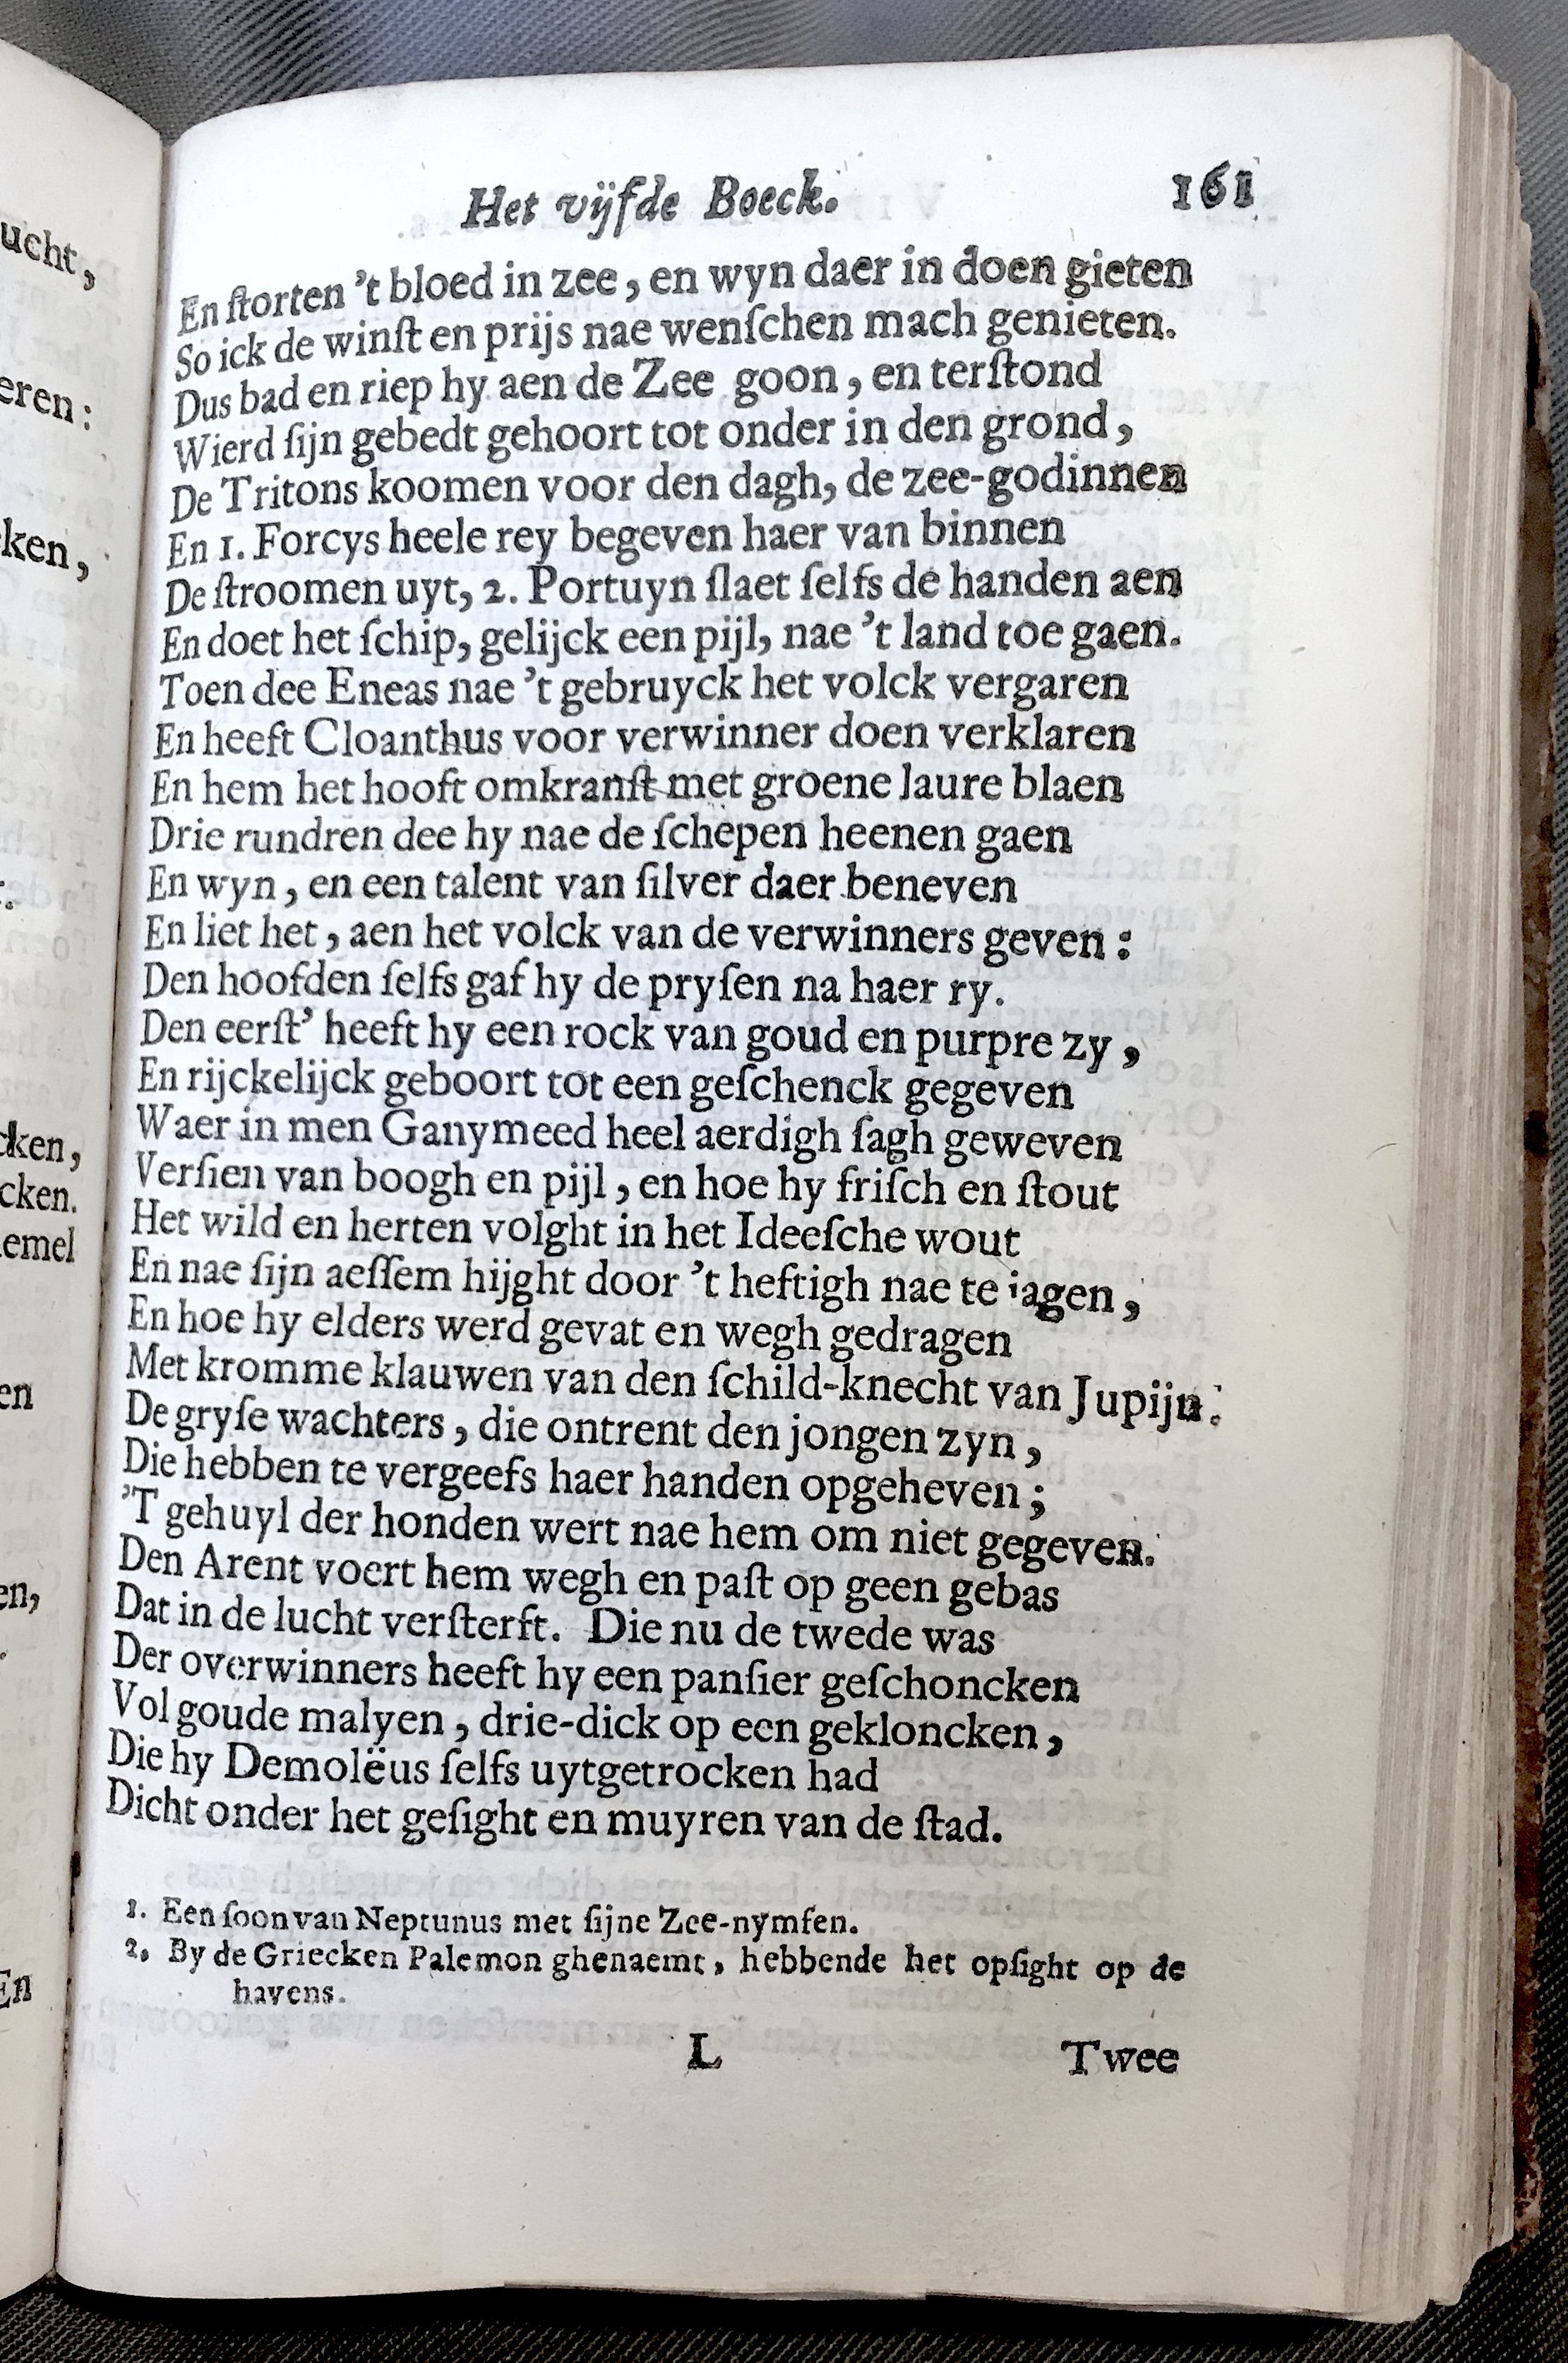 ucht,
eren:
ken,
cken,
cken.
emel
en
en,
En
Het vijfde Boeck. 161
En ſtorten 't bloed in zee, en wyn daer in doen gieten
So ick de winſt en prijs nae wenſchen mach genieten.
Dus bad en riep hy aen de Zee goon, en terſtond
Wierd ſijn gebedt gehoort tot onder in den grond,
De Tritons koomen voor den dagh, de zee-godinnen
En 1. Forcys heele rey begeven haer van binnen
De ſtroomen uyt, 2. Portuyn ſlaet ſelfs de handen aen
En doet het ſchip, gelijck een pijl, nae 't land toe gaen.
Toen dee Eneas nae 't gebruyck het volck vergaren
En heeft Cloanthus voor verwinner doen verklaren
En hem het hooft omkranſt met groene laure blaen
Drie rundren dee hy nae de ſchepen heenen gaen
En wyn, en een talent van ſilver daer beneven
En liet het, aen het volck van de verwinners geven:
Den hoofden ſelfs gaf hy de pryſen na haer ry.
Den eerſt' heeft hy een rock van goud en purpre zy,
En rijckelijck geboort tot een geſchenck gegeven
Waer in men Ganymeed heel aerdigh ſagh geweven
Verſien van boogh en pijl, en hoe hy friſch en ſtout
Het wild en herten volght in het Ideeſche wout
En nae ſijn aeſſem hijght door 't heftigh nae te iagen,
En hoe hy elders werd gevat en wegh gedragen
Met kromme klauwen van den ſchild-knecht van Jupijn.
De gryſe wachters, die ontrent den jongen zyn,
Die hebben te vergeefs haer handen opgeheven;
'T gehuyl der honden wert nae hem om niet gegeven.
Den Arent voert hem wegh en paſt op geen gebas
Dat in de lucht verſterft. Die nu de twede was
Der overwinners heeft hy een panſier geſchoncken
Vol goude malyen, drie-dick op een gekloncken,
Die hy Demolëus ſelfs uytgetrocken had
Dicht onder het geſight en muyren van de ſtad.
1. Een ſoon van Neptunus met ſijne Zee-nymfen.
2. By de Griecken Palemon ghenaemt, hebbende het opſight op de
havens.
L Twee